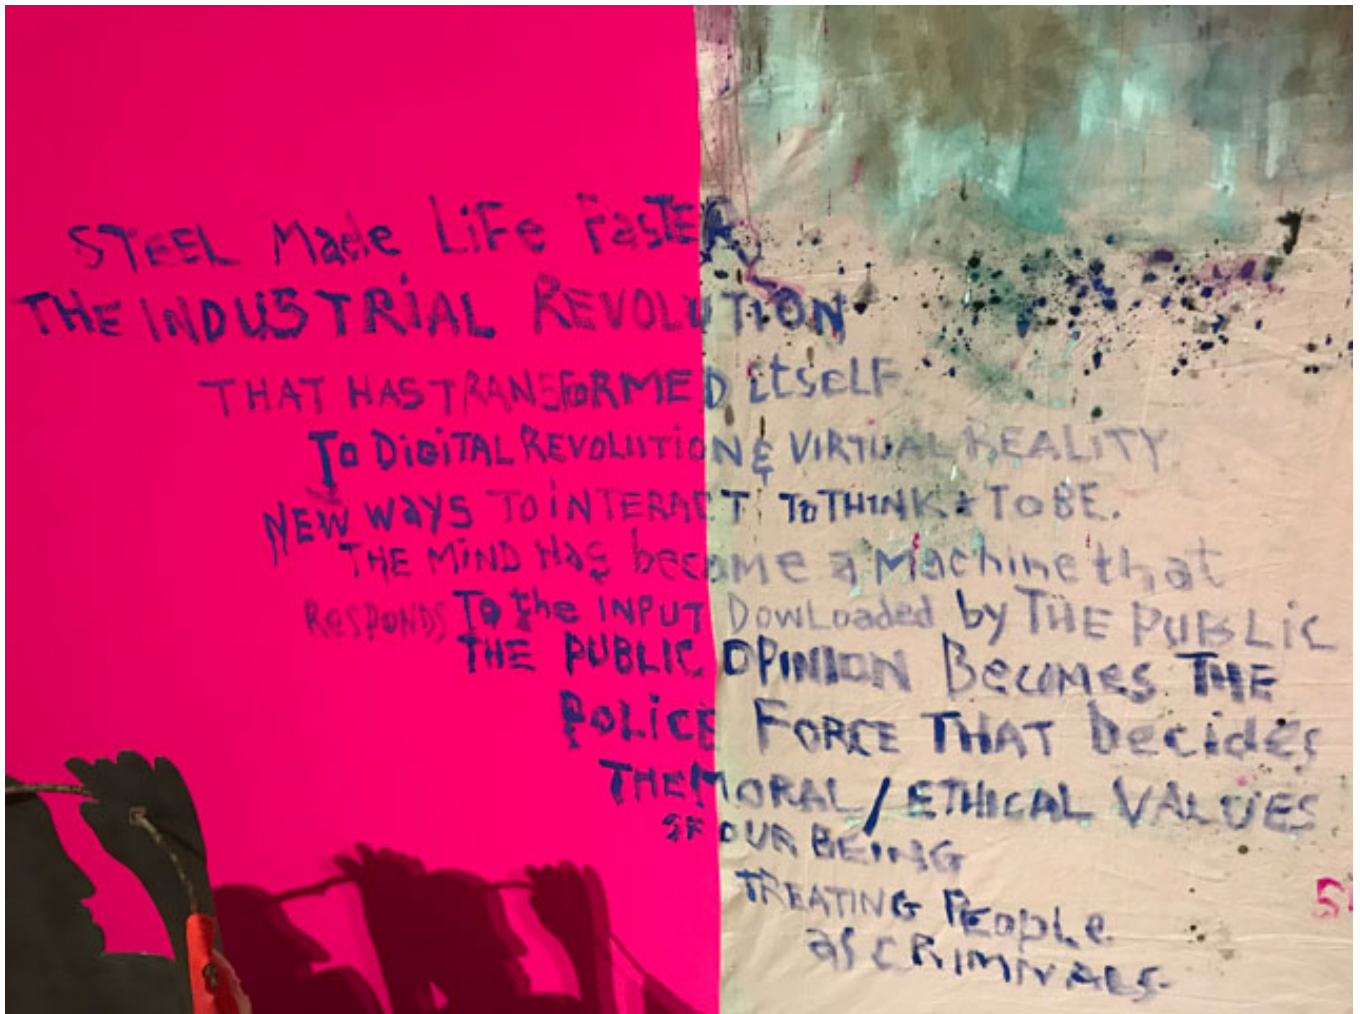 STEEL Made LiFe FasTER
THE INDUSTRiAL REVOLUTION
THAT HAS TRANSFORMED itSELF
To DiGiTAL REVOLUTiON & VIRTUAL REALiTY
NEW WaYS TO iNTERACT TO THINK & TO BE.
THE MiND Has become a Machine that
ResPONDS To the INPUT DowLoaded by THE PUBLiC
THE PUBLIC OPINION Becomes THE
POLiCE FORCE THAT Decides
THE MORAL / ETHICAL VALUES
OF OUR BEING
TREATING PEople
as CRIMINALS.